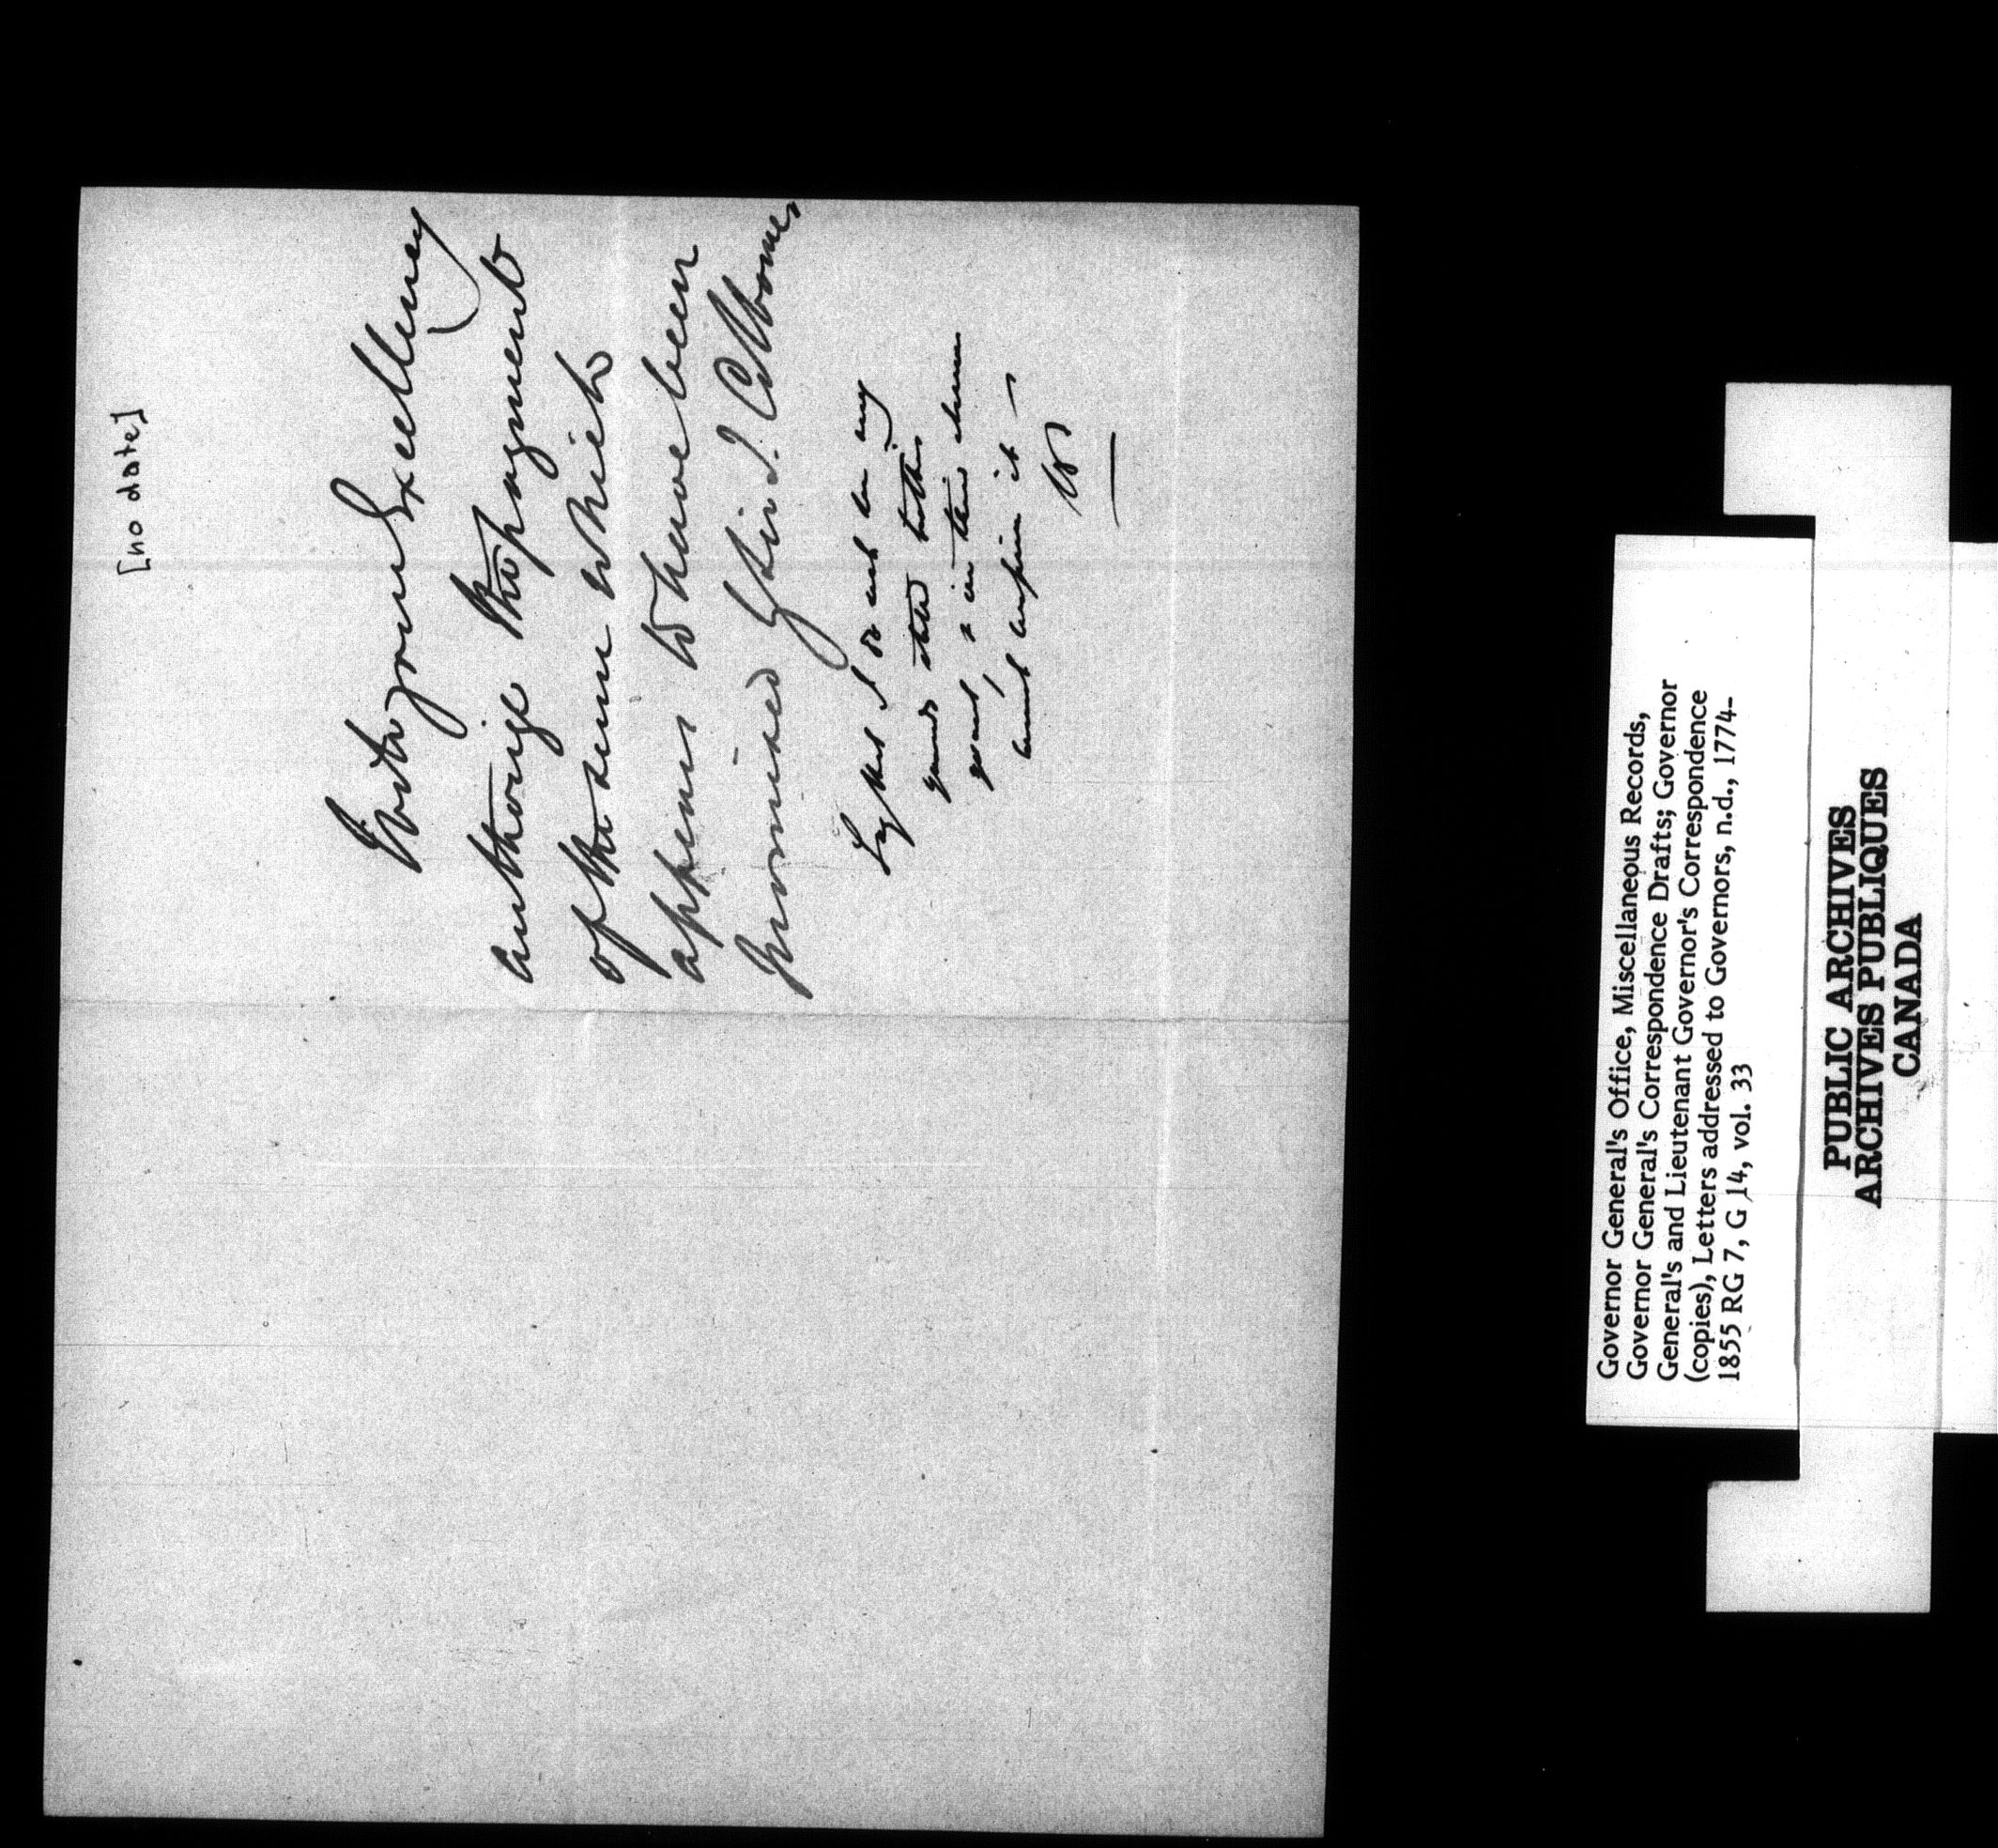 [no date]
Will your Excellency
authorize the payment
of the sum which
appears to have been
promised by Sir J. Colborne
Say that I do not see any
grounds stated
&
must it —
Governor General's Office, Miscellaneous Records,
Governor General's Correspondence Drafts; Governor
General's and Lieutenant Governor's Correspondence
(copies), Letters addressed to Governors, n.d., 1774-
1855 RG 7, G 14, vol. 33
PUBLIC ARCHIVES
ARCHIVES PUBLIQUES
CANADA